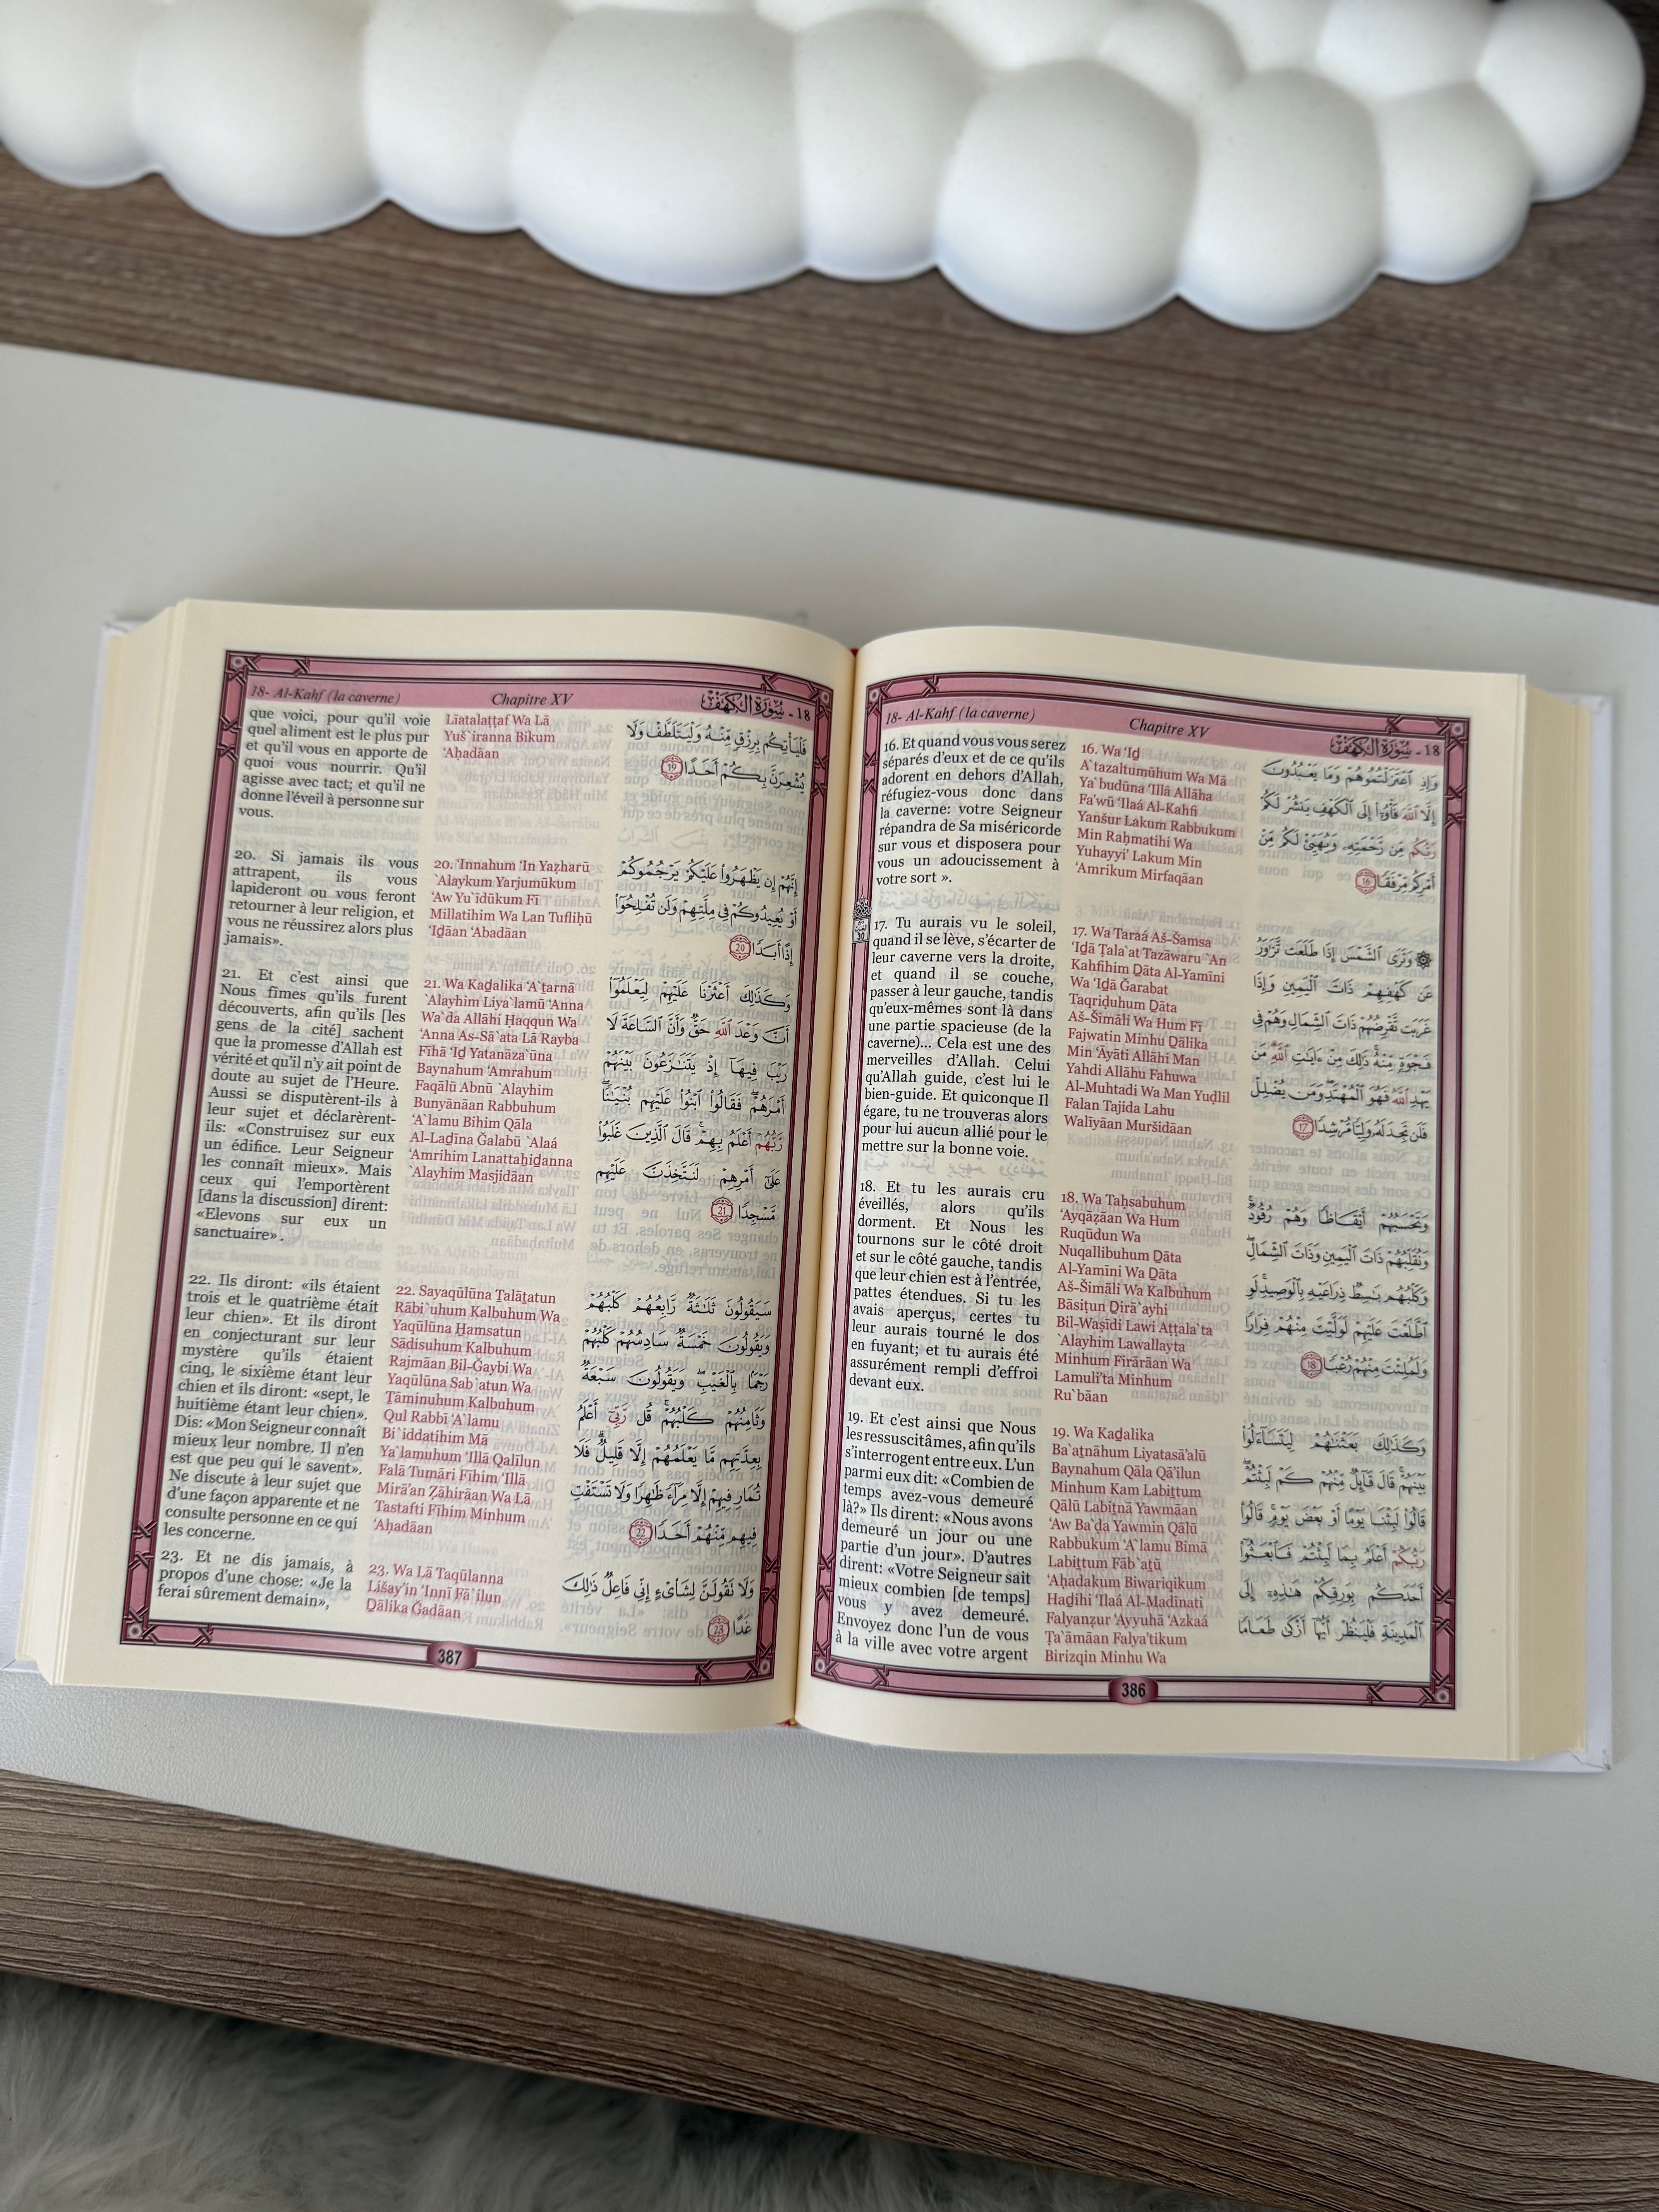 18- Al-Kahf (la caverne)
Chapitre XV
18 - سُورَةُ الكَهْفِ
16. Et quand vous vous serez
séparés d'eux et de ce qu'ils
adorent en dehors d'Allah,
réfugiez-vous donc dans
la caverne: votre Seigneur
répandra de Sa miséricorde
sur vous et disposera pour
vous un adoucissement à
votre sort ».
17. Tu aurais vu le soleil,
quand il se lève, s'écarter de
leur caverne vers la droite,
et quand il se couche,
passer à leur gauche, tandis
qu'eux-mêmes sont là dans
une partie spacieuse (de la
caverne)... Cela est une des
merveilles d'Allah. Celui
qu'Allah guide, c'est lui le
bien-guidé. Et quiconque Il
égare, tu ne trouveras alors
pour lui aucun allié pour le
mettre sur la bonne voie.
18. Et tu les aurais cru
éveillés, alors qu'ils
dorment. Et Nous les
tournons sur le côté droit
et sur le côté gauche, tandis
que leur chien est à l'entrée,
pattes étendues. Si tu les
avais aperçus, certes tu
leur aurais tourné le dos
en fuyant; et tu aurais été
assurément rempli d'effroi
devant eux.
19. Et c'est ainsi que Nous
les ressuscitâmes, afin qu'ils
s'interrogent entre eux. L'un
parmi eux dit: «Combien de
temps avez-vous demeuré
là?» Ils dirent: «Nous avons
demeuré un jour ou une
partie d'un jour». D'autres
dirent: «Votre Seigneur sait
mieux combien [de temps]
vous y avez demeuré.
Envoyez donc l'un de vous
à la ville avec votre argent
16. Wa 'Iḏ
A`tazaltumūhum Wa Mā
Ya`budūna 'Illā Allāha
Fa'wū 'Ilaá Al-Kahfi
Yanšur Lakum Rabbukum
Min Raḥmatihi Wa
Yuhayyi' Lakum Min
'Amrikum Mirfaqāan
17. Wa Taraá Aš-Šamsa
'Iḏā Ṭala`at Tazāwaru `An
Kahfihim Ḏāta Al-Yamīni
Wa 'Iḏā Ġarabat
Taqriḍuhum Ḏāta
Aš-Šimāli Wa Hum Fī
Fajwatin Minhu Ḏālika
Min 'Āyāti Allāhi Man
Yahdi Allāhu Fahuwa
Al-Muhtadi Wa Man Yuḍlil
Falan Tajida Lahu
Waliyāan Muršidāan
18. Wa Taḥsabuhum
'Ayqāẓāan Wa Hum
Ruqūdun Wa
Nuqallibuhum Ḏāta
Al-Yamīni Wa Ḏāta
Aš-Šimāli Wa Kalbuhum
Bāsiṭun Ḏirā`ayhi
Bil-Waṣīdi Lawi Aṭṭala`ta
`Alayhim Lawallayta
Minhum Firārāan Wa
Lamuli'ta Minhum
Ru`bāan
19. Wa Kaḏalika
Ba`aṯnāhum Liyatasā'alū
Baynahum Qāla Qā'ilun
Minhum Kam Labiṯtum
Qālū Labiṯnā Yawmāan
'Aw Ba`ḍa Yawmin Qālū
Rabbukum 'A`lamu Bimā
Labiṯtum Fāb`aṯū
'Aḥadakum Biwariqikum
Haḏihi 'Ilaá Al-Madīnati
Falyanẓur 'Ayyuhā 'Azkaá
Ṭa`āmāan Falya'tikum
Birizqin Minhu Wa
وَإِذِ ٱعْتَزَلْتُمُوهُمْ وَمَا يَعْبُدُونَ
إِلَّا ٱللَّهَ فَأْوُۥٓا۟ إِلَى ٱلْكَهْفِ يَنشُرْ لَكُمْ
رَبُّكُم مِّن رَّحْمَتِهِۦ وَيُهَيِّئْ لَكُم مِّنْ
أَمْرِكُم مِّرْفَقًا 16
۞ وَتَرَى ٱلشَّمْسَ إِذَا طَلَعَت تَّزَٰوَرُ
عَن كَهْفِهِمْ ذَاتَ ٱلْيَمِينِ وَإِذَا
غَرَبَت تَّقْرِضُهُمْ ذَاتَ ٱلشِّمَالِ وَهُمْ فِى
فَجْوَةٍ مِّنْهُ ۚ ذَٰلِكَ مِنْ ءَايَٰتِ ٱللَّهِ ۗ مَن
يَهْدِ ٱللَّهُ فَهُوَ ٱلْمُهْتَدِ ۖ وَمَن يُضْلِلْ
فَلَن تَجِدَ لَهُۥ وَلِيًّا مُّرْشِدًا 17
وَتَحْسَبُهُمْ أَيْقَاظًا وَهُمْ رُقُودٌ ۚ
وَنُقَلِّبُهُمْ ذَاتَ ٱلْيَمِينِ وَذَاتَ ٱلشِّمَالِ ۖ
وَكَلْبُهُم بَٰسِطٌ ذِرَاعَيْهِ بِٱلْوَصِيدِ ۚ لَوِ
ٱطَّلَعْتَ عَلَيْهِمْ لَوَلَّيْتَ مِنْهُمْ فِرَارًا
وَلَمُلِئْتَ مِنْهُمْ رُعْبًا 18
وَكَذَٰلِكَ بَعَثْنَٰهُمْ لِيَتَسَآءَلُوا۟
بَيْنَهُمْ ۚ قَالَ قَآئِلٌ مِّنْهُمْ كَمْ لَبِثْتُمْ ۖ
قَالُوا۟ لَبِثْنَا يَوْمًا أَوْ بَعْضَ يَوْمٍ ۚ قَالُوا۟
رَبُّكُمْ أَعْلَمُ بِمَا لَبِثْتُمْ فَٱبْعَثُوٓا۟
أَحَدَكُم بِوَرِقِكُمْ هَٰذِهِۦٓ إِلَى
ٱلْمَدِينَةِ فَلْيَنظُرْ أَيُّهَآ أَزْكَىٰ طَعَامًا
386
18- Al-Kahf (la caverne)
Chapitre XV
18 - سُورَةُ الكَهْفِ
que voici, pour qu'il voie
quel aliment est le plus pur
et qu'il vous en apporte de
quoi vous nourrir. Qu'il
agisse avec tact; et qu'il ne
donne l'éveil à personne sur
vous.
20. Si jamais ils vous
attrapent, ils vous
lapideront ou vous feront
retourner à leur religion, et
vous ne réussirez alors plus
jamais».
21. Et c'est ainsi que
Nous fîmes qu'ils furent
découverts, afin qu'ils [les
gens de la cité] sachent
que la promesse d'Allah est
vérité et qu'il n'y ait point de
doute au sujet de l'Heure.
Aussi se disputèrent-ils à
leur sujet et déclarèrent-
ils: «Construisez sur eux
un édifice. Leur Seigneur
les connaît mieux». Mais
ceux qui l'emportèrent
[dans la discussion] dirent:
«Elevons sur eux un
sanctuaire».
22. Ils diront: «ils étaient
trois et le quatrième était
leur chien». Et ils diront
en conjecturant sur leur
mystère qu'ils étaient
cinq, le sixième étant leur
chien et ils diront: «sept, le
huitième étant leur chien».
Dis: «Mon Seigneur connaît
mieux leur nombre. Il n'en
est que peu qui le savent».
Ne discute à leur sujet que
d'une façon apparente et ne
consulte personne en ce qui
les concerne.
23. Et ne dis jamais, à
propos d'une chose: «Je la
ferai sûrement demain»,
Līatalaṭṭaf Wa Lā
Yuš`iranna Bikum
'Aḥadāan
20. 'Innahum 'In Yaẓharū
`Alaykum Yarjumūkum
'Aw Yu`īdūkum Fī
Millatihim Wa Lan Tufliḥū
'Iḏāan 'Abadāan
21. Wa Kaḏalika 'A`ṯarnā
`Alayhim Liya`lamū 'Anna
Wa`da Allāhi Ḥaqqun Wa
'Anna As-Sā`ata Lā Rayba
Fīhā 'Iḏ Yatanāza`ūna
Baynahum 'Amrahum
Faqālū Abnū `Alayhim
Bunyānāan Rabbuhum
'A`lamu Bihim Qāla
Al-Laḏīna Ġalabū `Alaá
'Amrihim Lanattaḥiḏanna
`Alayhim Masjidāan
22. Sayaqūlūna Ṯalāṯatun
Rābi`uhum Kalbuhum Wa
Yaqūlūna Ḥamsatun
Sādisuhum Kalbuhum
Rajmāan Bil-Ġaybi Wa
Yaqūlūna Sab`atun Wa
Ṯāminuhum Kalbuhum
Qul Rabbī 'A`lamu
Bi`iddatihim Mā
Ya`lamuhum 'Illā Qalīlun
Falā Tumāri Fīhim 'Illā
Mirā'an Ẓāhirāan Wa Lā
Tastafti Fīhim Minhum
'Aḥadāan
23. Wa Lā Taqūlanna
Lišay'in 'Innī Fā`ilun
Ḏālika Ġadāan
فَلْيَأْتِكُم بِرِزْقٍ مِّنْهُ وَلْيَتَلَطَّفْ وَلَا
يُشْعِرَنَّ بِكُمْ أَحَدًا 19
إِنَّهُمْ إِن يَظْهَرُوا۟ عَلَيْكُمْ يَرْجُمُوكُمْ
أَوْ يُعِيدُوكُمْ فِى مِلَّتِهِمْ وَلَن تُفْلِحُوٓا۟
إِذًا أَبَدًا 20
وَكَذَٰلِكَ أَعْثَرْنَا عَلَيْهِمْ لِيَعْلَمُوٓا۟
أَنَّ وَعْدَ ٱللَّهِ حَقٌّ وَأَنَّ ٱلسَّاعَةَ لَا
رَيْبَ فِيهَآ إِذْ يَتَنَٰزَعُونَ بَيْنَهُمْ
أَمْرَهُمْ ۖ فَقَالُوا۟ ٱبْنُوا۟ عَلَيْهِم بُنْيَٰنًا ۖ
رَّبُّهُمْ أَعْلَمُ بِهِمْ ۚ قَالَ ٱلَّذِينَ غَلَبُوا۟
عَلَىٰٓ أَمْرِهِمْ لَنَتَّخِذَنَّ عَلَيْهِم
مَّسْجِدًا 21
سَيَقُولُونَ ثَلَٰثَةٌ رَّابِعُهُمْ كَلْبُهُمْ
وَيَقُولُونَ خَمْسَةٌ سَادِسُهُمْ كَلْبُهُمْ
رَجْمًۢا بِٱلْغَيْبِ ۖ وَيَقُولُونَ سَبْعَةٌ
وَثَامِنُهُمْ كَلْبُهُمْ ۚ قُل رَّبِّىٓ أَعْلَمُ
بِعِدَّتِهِم مَّا يَعْلَمُهُمْ إِلَّا قَلِيلٌ ۗ فَلَا
تُمَارِ فِيهِمْ إِلَّا مِرَآءً ظَٰهِرًا وَلَا تَسْتَفْتِ
فِيهِم مِّنْهُمْ أَحَدًا 22
وَلَا تَقُولَنَّ لِشَا۟ىْءٍ إِنِّى فَاعِلٌ ذَٰلِكَ
غَدًا 23
387